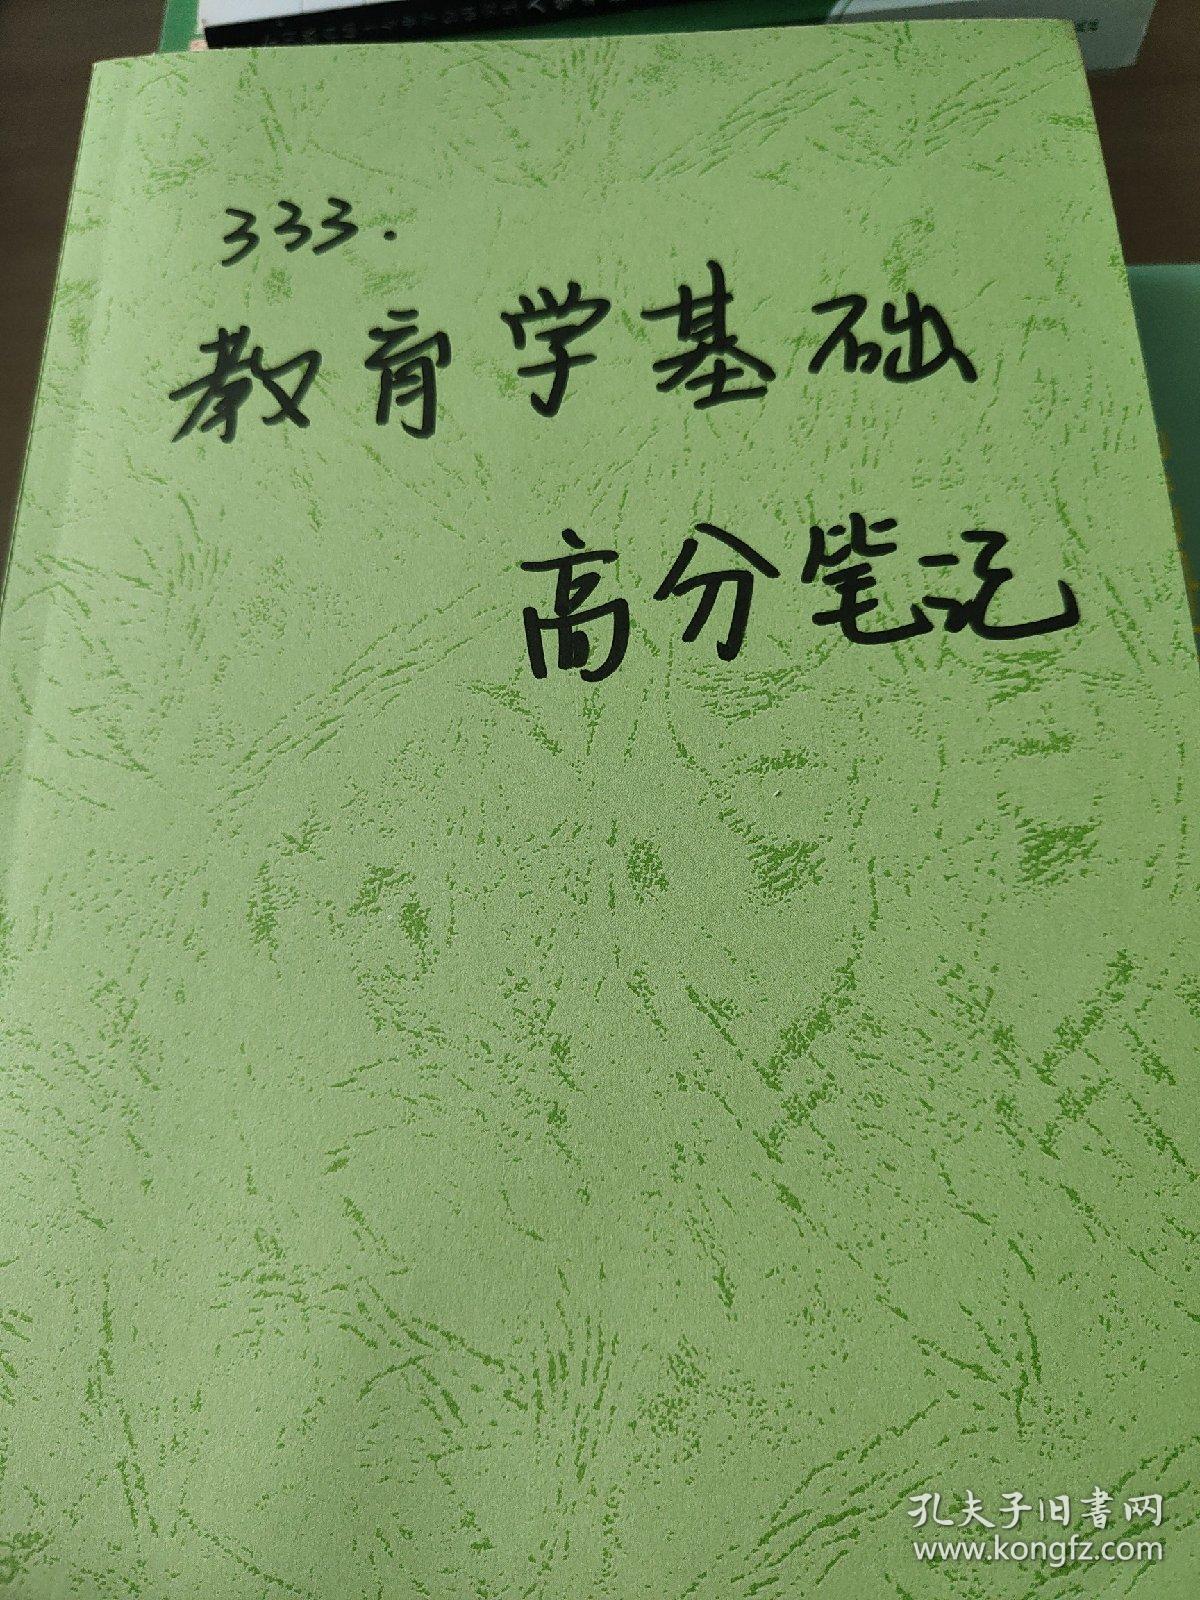 333.
教育学基础
高分笔记
孔夫子旧書网
www.kongfz.com